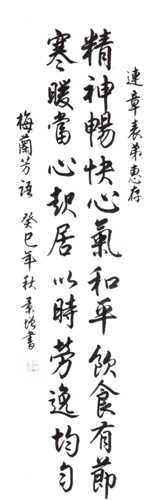 連章表弟惠存
精神暢快心氣和平飲食有節
寒暖當心起居以時勞逸均勻
梅蘭芳語 癸巳年秋景培書